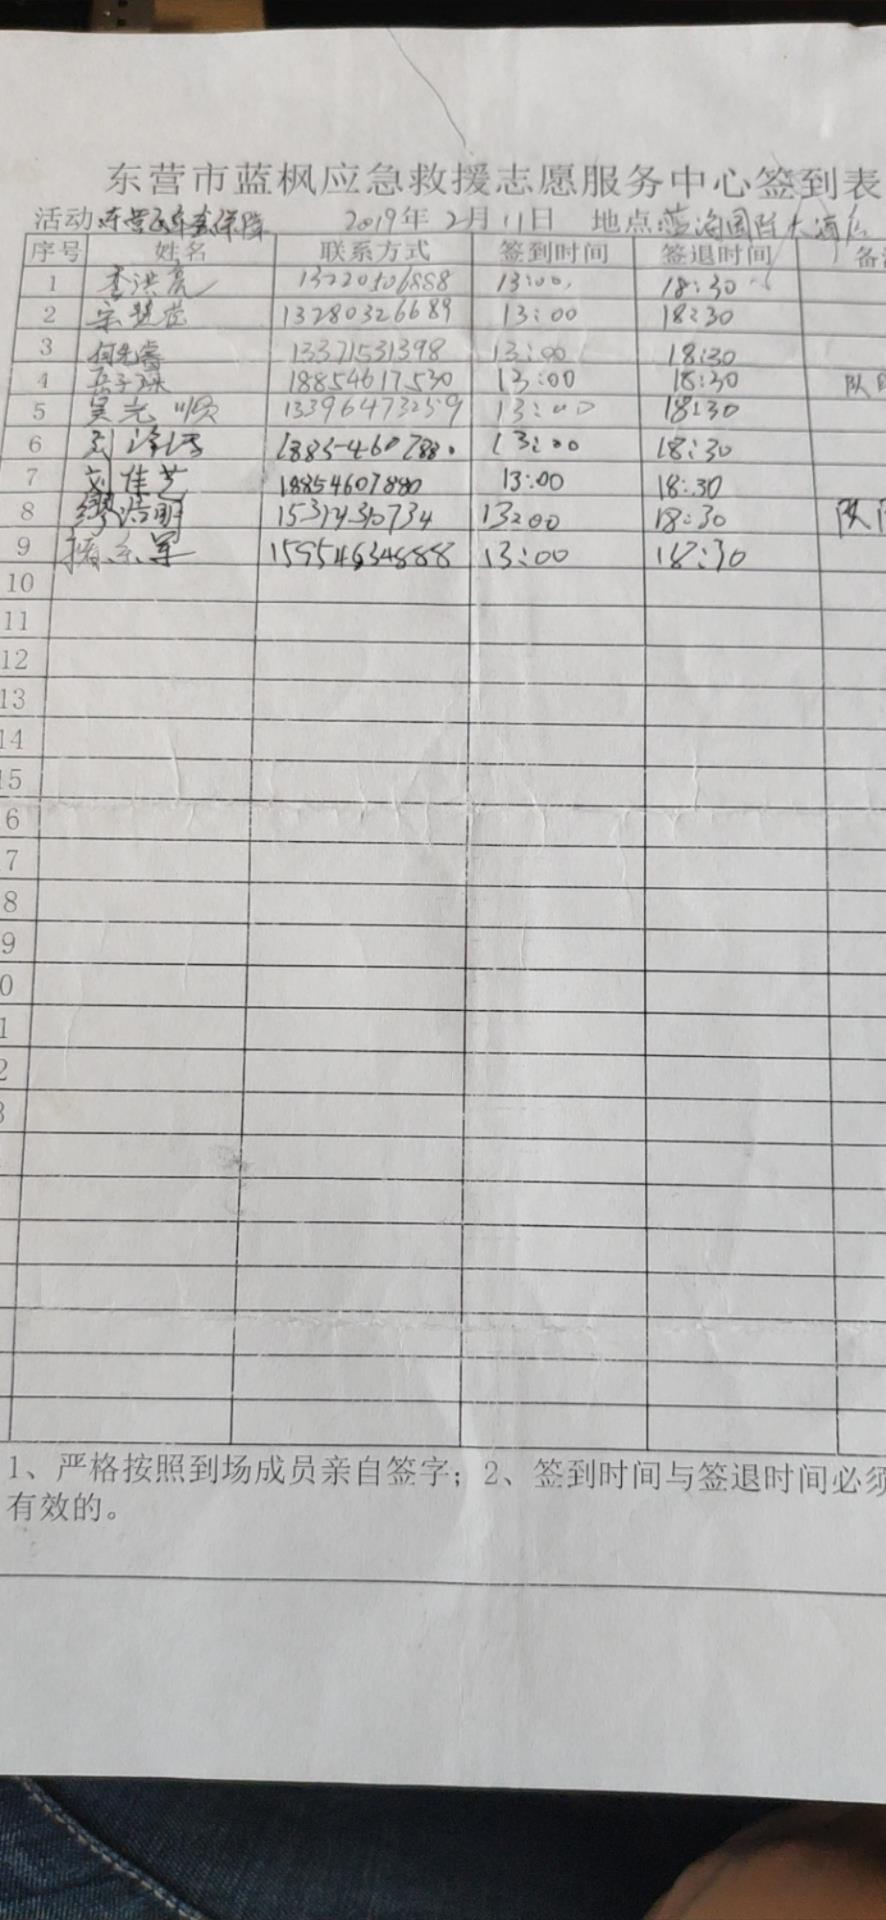 东营市蓝枫应急救援志愿服务中心签到表
活动 东营 保障 2019年2月11日 地点 蓝海国际大酒店
序号 姓名 联系方式 签到时间 签退时间 备
1 李洪亮 13220506888 13:00 18:30
2 13280326689 13:00 18:30
3 何先睿 13371531398 13:00 18:30
4 18854617530 13:00 18:30 队
5 吴光顺 13396473259 13:00 18:30
6 刘 1885460788 13:00 18:30
7 刘佳芝 18854607880 13:00 18:30
8 缪浩明 13:00 18:30 队
9 军 15954634888 13:00 18:30
10
11
12
13
14
15
6
7
8
9
0
1
2
3
1、严格按照到场成员亲自签字；2、签到时间与签退时间必须
有效的。